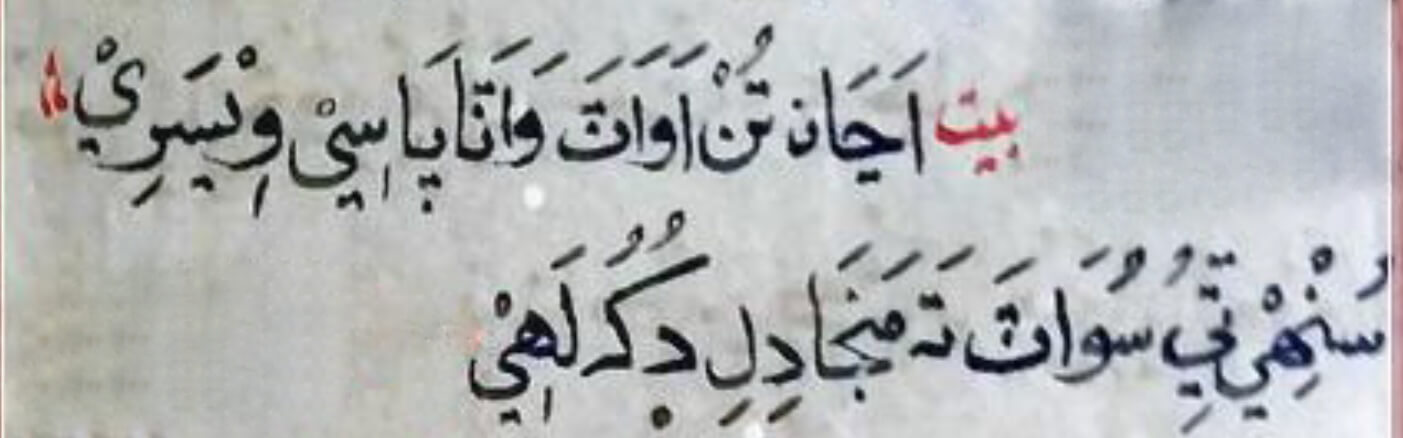 بيت اَجَا نہ تُنْ اَوَاتَ وَاتَا پَاسِيْ وِيْسَرِيْ
سُنْهِيْ تِيُ سُوَاتَ تَہ مَنجَا دِلِ دُکُہ لَهِيْ